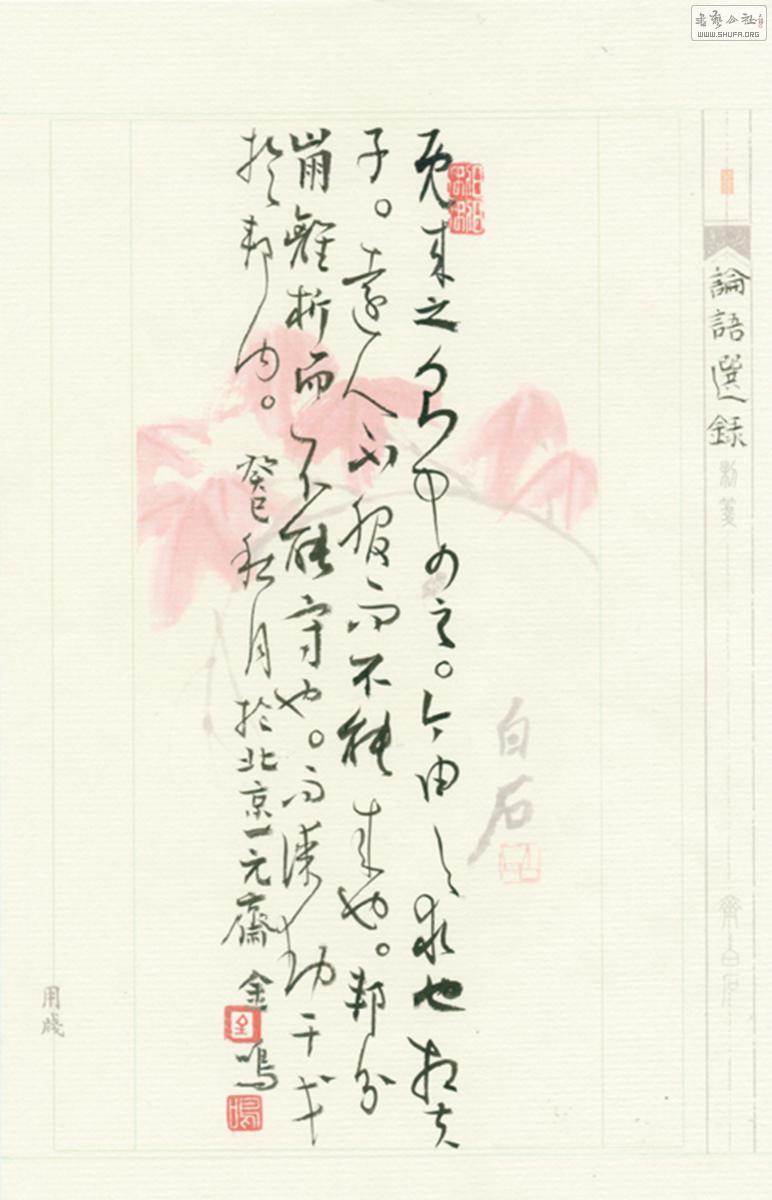 書藝公社
WWW.SHUFA.ORG
論語選錄
齊白石
既來之則安之。今由與求也相夫
子。遠人不服而不能來也。邦分
崩離析而不能守也。而謀動干戈
於邦內。癸巳秋月於北京一元齋金鳴
白石
用牋